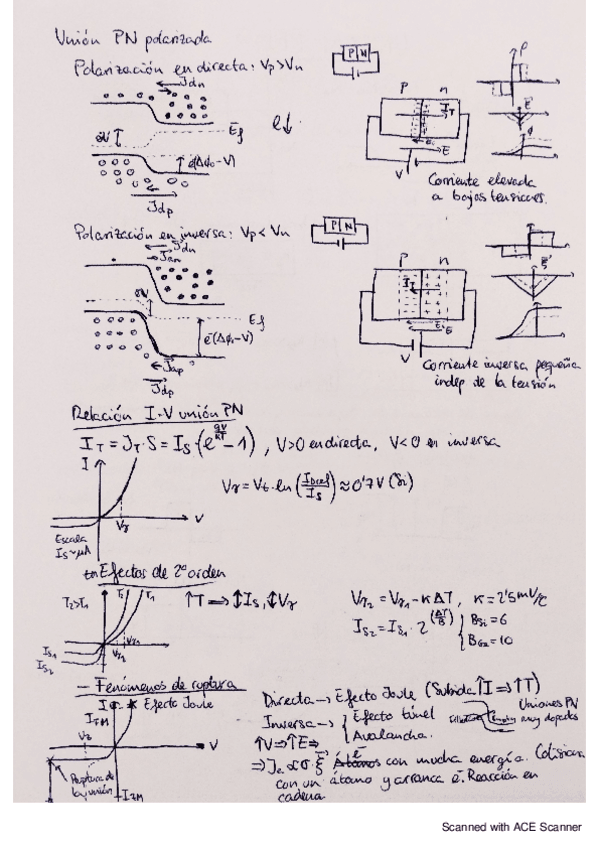 Unión PN polarizada
Polarización en directa: Vp>Vn
P N
Jdn
eV
Ef
e(Δϕ₀-V)
Jdp
e↓
P n
IT
E
V
ρ
E
ϕ
Corriente elevada
a bajas tensiones.
Polarización en inversa: Vp<Vn
P N
Jdn
Jan
eV
Ef
e(Δϕ₀-V)
Jap
Jdp
P n
V
Corriente inversa pequeña
indep de la tensión
Relación I-V unión PN
IT = JT·S = IS·(e^(qV/KT) - 1), V>0 en directa, V<0 en inversa
I
V
Vγ
Escala
IS~μA
Vγ = Vt·ln(IDref/IS) ≈ 0'7V (Si)
Efectos de 2º orden
T2>T1
T2
T1
V
IS1
IS2
Vγ2
Vγ1
↑T ⟹ ↕IS, ↕Vγ
Vγ2 = Vγ1 - KΔT, K = 2'5 mV/ºC
IS2 = IS1·2^(ΔT/B)
BSi = 6
BGe = 10
- Fenómenos de ruptura
I
Efecto Joule
ITM
Vz
V
Ruptura de
la unión
IZM
Directa → Efecto Joule (Subida ↑I ⟹ ↑T)
Inversa → Efecto túnel
Avalancha.
Uniones PN
muy dopadas
↑V ⟹ ↑E ⟹
⟹ Je ∝ σ·ξ Átomos e con mucha energía. Colisionan
con un átomo y arranca e. Reacción en
cadena
Scanned with ACE Scanner